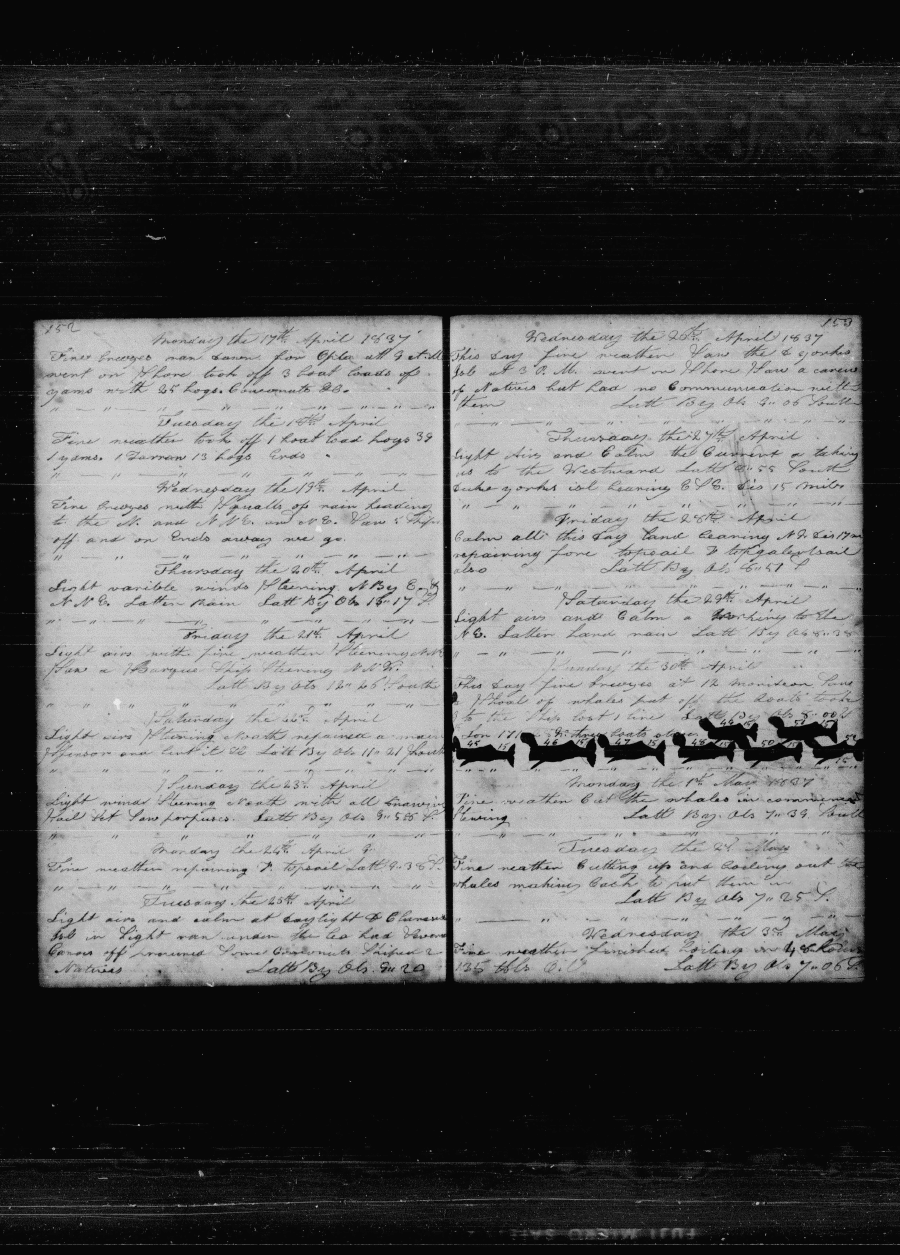 152
Monday the 17th April 1837
Fine breezes ran down for Opler att 9 A M
went on Shore took off 3 boat loads of
yams with 25 hogs. Coucanuts &c.
Tuesday the 18th April
Fine weather took off 1 boat load hogs 39
1 yams. 13 hogs Ends
Wednesday the 19th April
Fine breezes with Squalls of rain heading
to the N. and N.N.E. and N.E. Saw 2 Ships
off and on Ends away we go.
Thursday the 20th April
Light varible winds Stearing N By E. &
N.N.E. Latter Rain Latt By Obs 15"17 S
Friday the 21st April
Light airs with fine weather Stearing N.N.W
Saw a Barque Ship Stearing N.N.W.
Latt By Obs 12"25 South
Saturday the 22d April
Light airs Stearing North repaired a main
Spencer and bent it Latt By Obs 11"21 South
Sunday the 23d April
Light winds Stearing North with all drawing
Sail Set Saw porpuses. Latt By Obs 9"55 S.
Monday the 24th April
Fine weather repairing F. topsail Latt 9"38 S.
Tuesday the 25th April
Light airs and calm at daylight
Isl in Sight ran under the lea had Several
Canoes off procured Some Coconuts Shiped 2
Natives Latt By Obs 9"20
153
Wednesday the 26th April 1837
This day fine weather Saw the D yorks
Isl at 3 P.M. went on Shore Saw a canoe
of Natives but had no Communication with
them Latt By Obs South
Thursday the 27th April
Light Airs and Calm the Current a taking
us to the Westward Latt South
Duke yorkes isl bearing E S E. Dis 15 miles
Friday the 28th April
Calm all this day land bearing N E Dis
repairing fore topsail & topgalentsail
also Latt By Obs 8"51 S
Saturday the 29th April
Light airs and Calm a Working to the
N.E. Latter hard rain Latt By Obs 8"38
Sunday the 30th April
This day fine breezes at 12 meridean Saw
a Shoal of whales put off the boats took
to the Ship lost 1 line Latt By Obs 8"00
Lon 171 three boats stoven
46 15 51 15
45 15 46 15 47 15 48 15 50 15 52
15
Monday the 1st May 1837
Fine weather Cut the whales in commenced
Stowing Latt By Obs 7"39 South
Tuesday the 2d May
Fine weather Cutting up and boiling out the
whales making Cask to put them in
Latt By Obs 7"25 S.
Wednesday the 3d May
Fine weather finished Boiling
135 bbls Latt By Obs 7"06 S.
FUJI MICRO SAFE